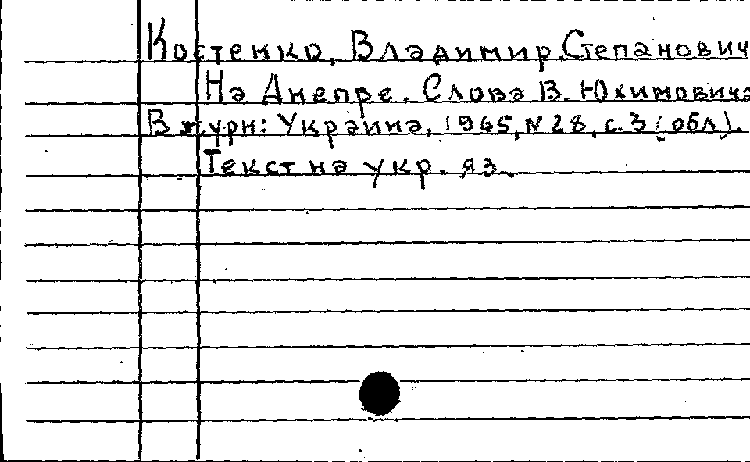 Костенко, Владимир Степанович
На Днепре. Слова В. Юхимовича
В журн: Украина, 1965, N 28, с. 3 (обл).
Текст на укр. яз.